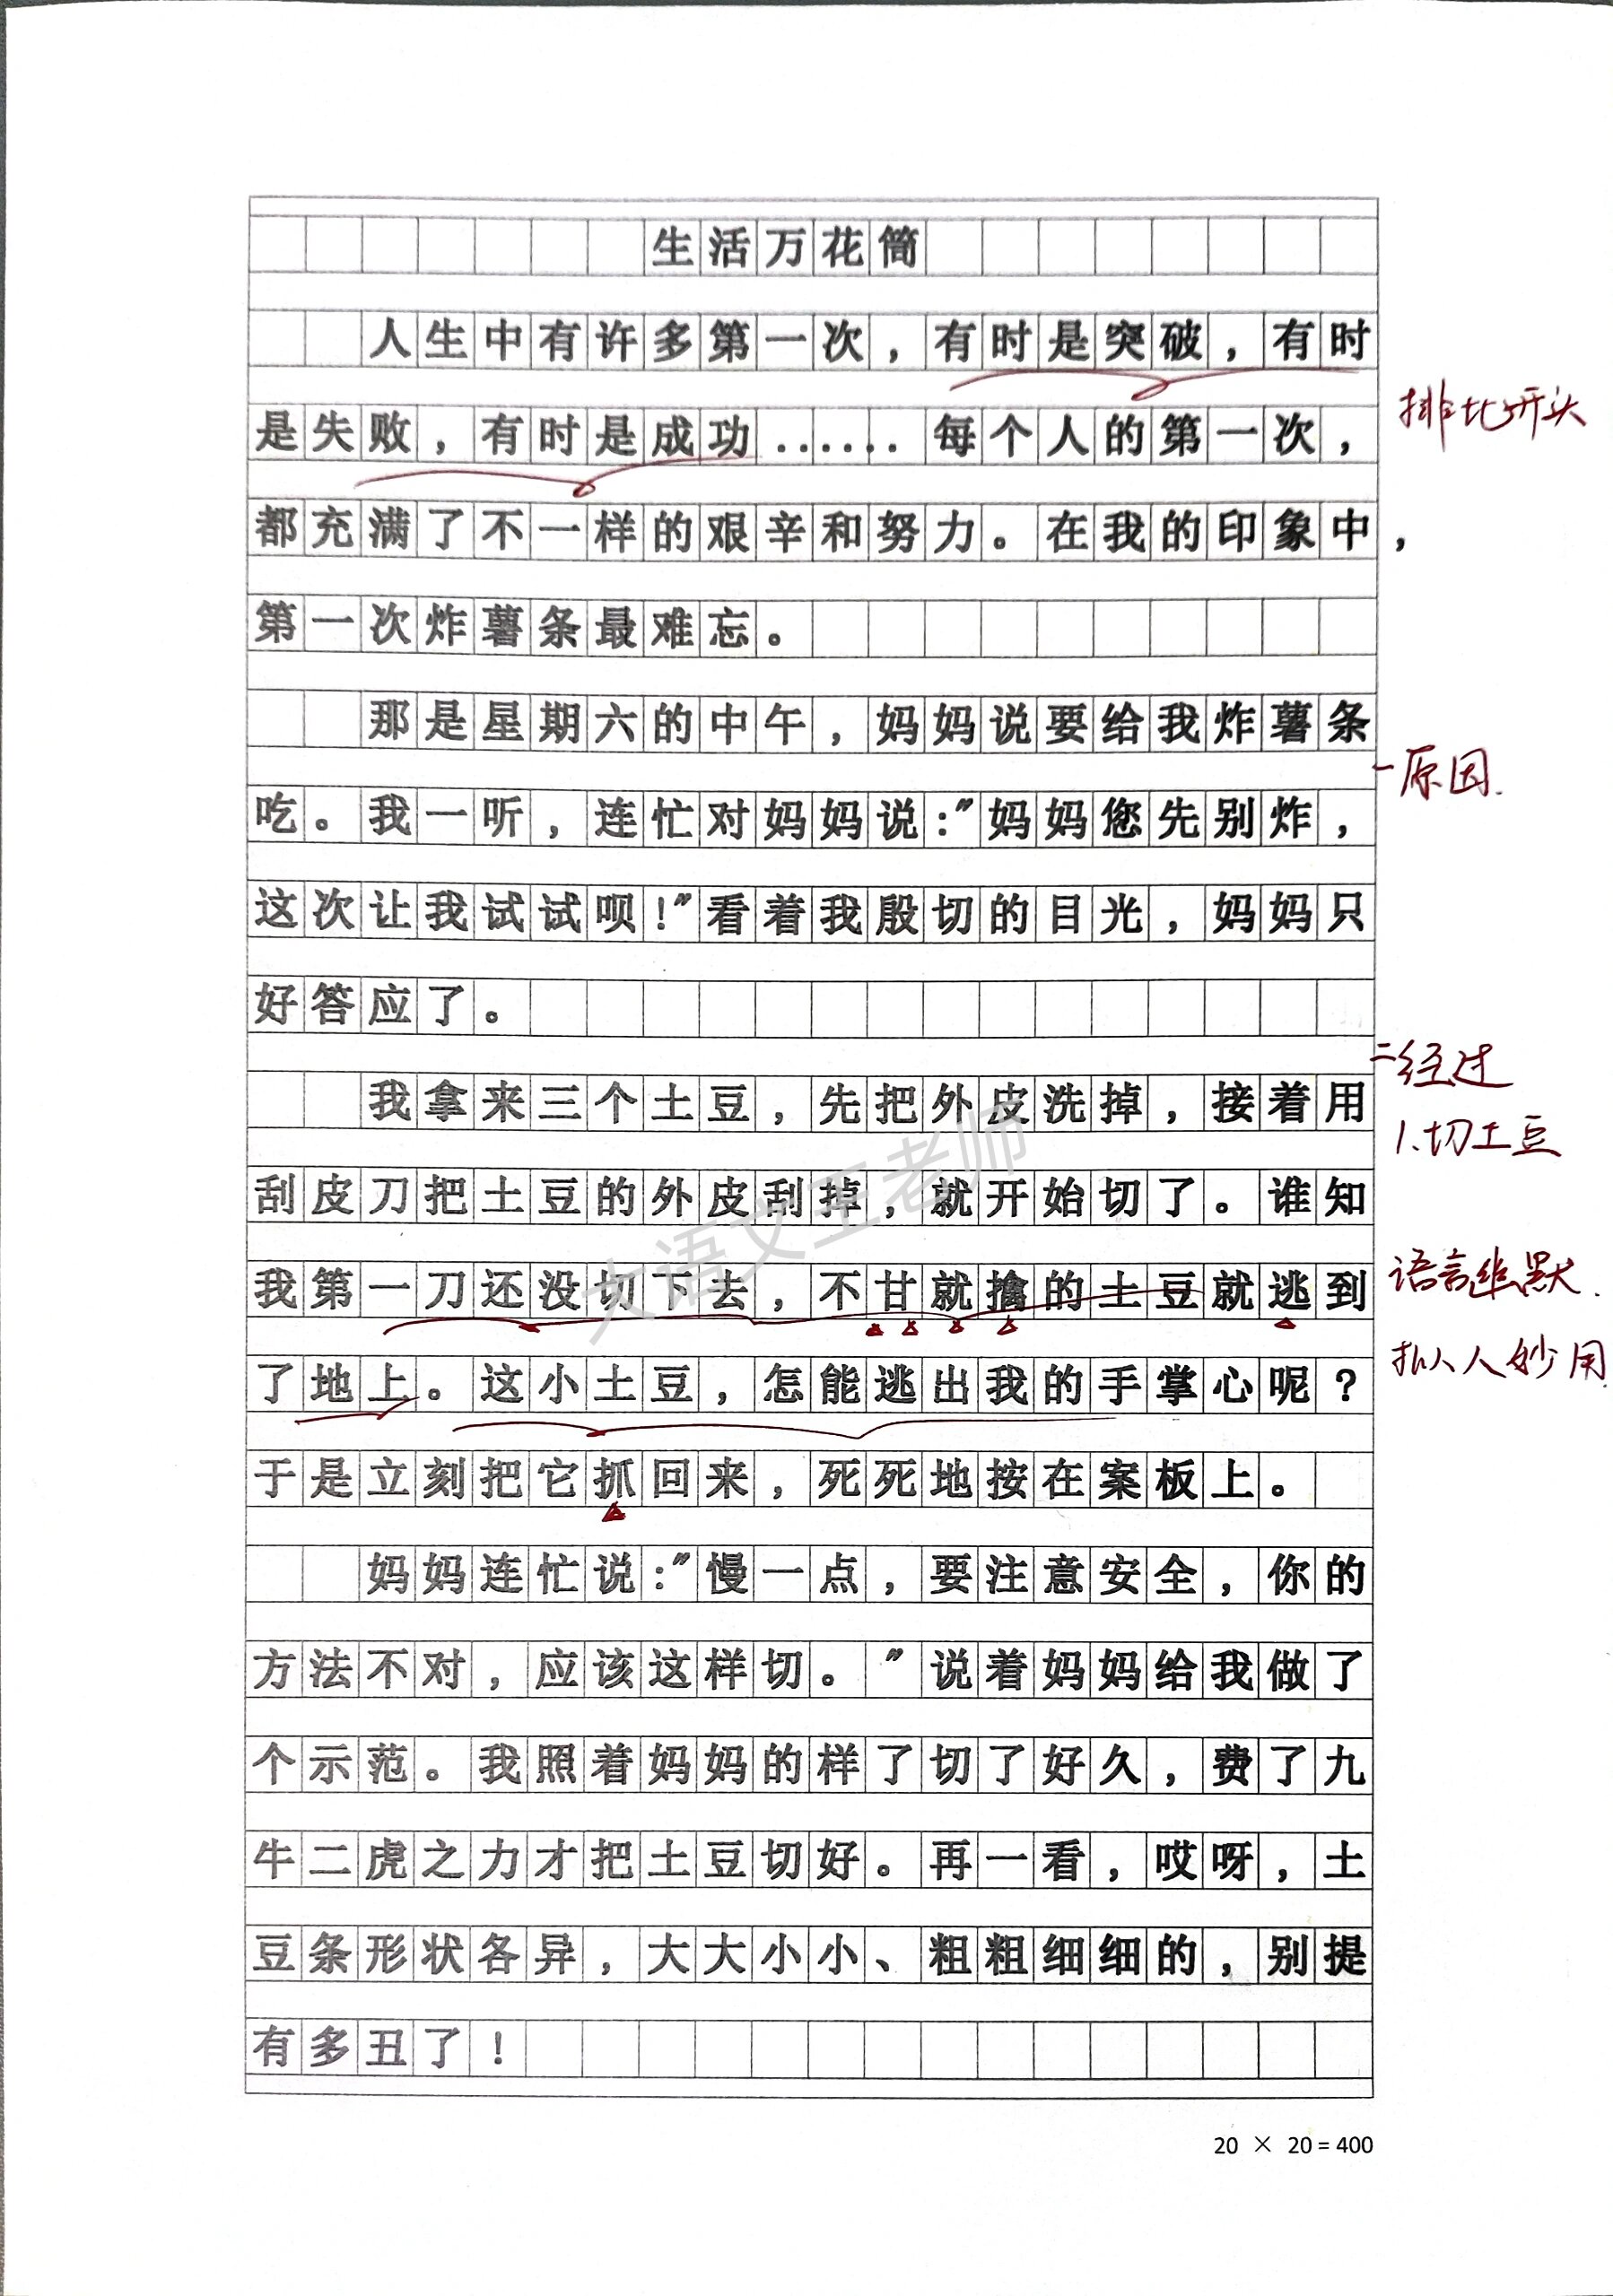 生活万花筒
人生中有许多第一次，有时是突破，有时
是失败，有时是成功……每个人的第一次，
排比开头
都充满了不一样的艰辛和努力。在我的印象中，
第一次炸薯条最难忘。
那是星期六的中午，妈妈说要给我炸薯条
一原因.
吃。我一听，连忙对妈妈说:"妈妈您先别炸，
这次让我试试呗!"看着我殷切的目光，妈妈只
好答应了。
二经过
我拿来三个土豆，先把外皮洗掉，接着用
1.切土豆
刮皮刀把土豆的外皮刮掉，就开始切了。谁知
我第一刀还没切下去，不甘就擒的土豆就逃到
语言幽默.
了地上。这小土豆，怎能逃出我的手掌心呢?
拟人妙用
于是立刻把它抓回来，死死地按在案板上。
妈妈连忙说:"慢一点，要注意安全，你的
方法不对，应该这样切。"说着妈妈给我做了
个示范。我照着妈妈的样了切了好久，费了九
牛二虎之力才把土豆切好。再一看，哎呀，土
豆条形状各异，大大小小、粗粗细细的，别提
有多丑了!
20 × 20 = 400
大语文王老师